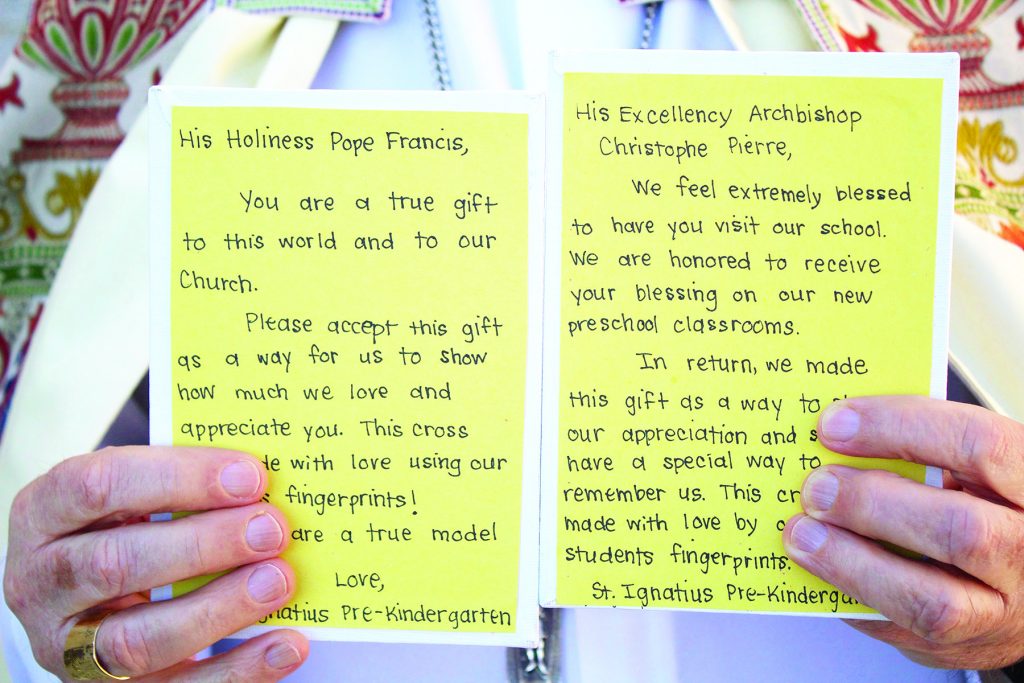 His Holiness Pope Francis,
You are a true gift
to this world and to our
Church.
Please accept this gift
as a way for us to show
how much we love and
appreciate you. This cross
with love using our
fingerprints!
are a true model
Love,
Pre-Kindergarten
His Excellency Archbishop
Christophe Pierre,
We feel extremely blessed
to have you visit our school.
We are honored to receive
your blessing on our new
preschool classrooms.
In return, we made
this gift as a way to
our appreciation and
have a special way to
remember us. This
made with love by
students fingerprints.
St. Ignatius